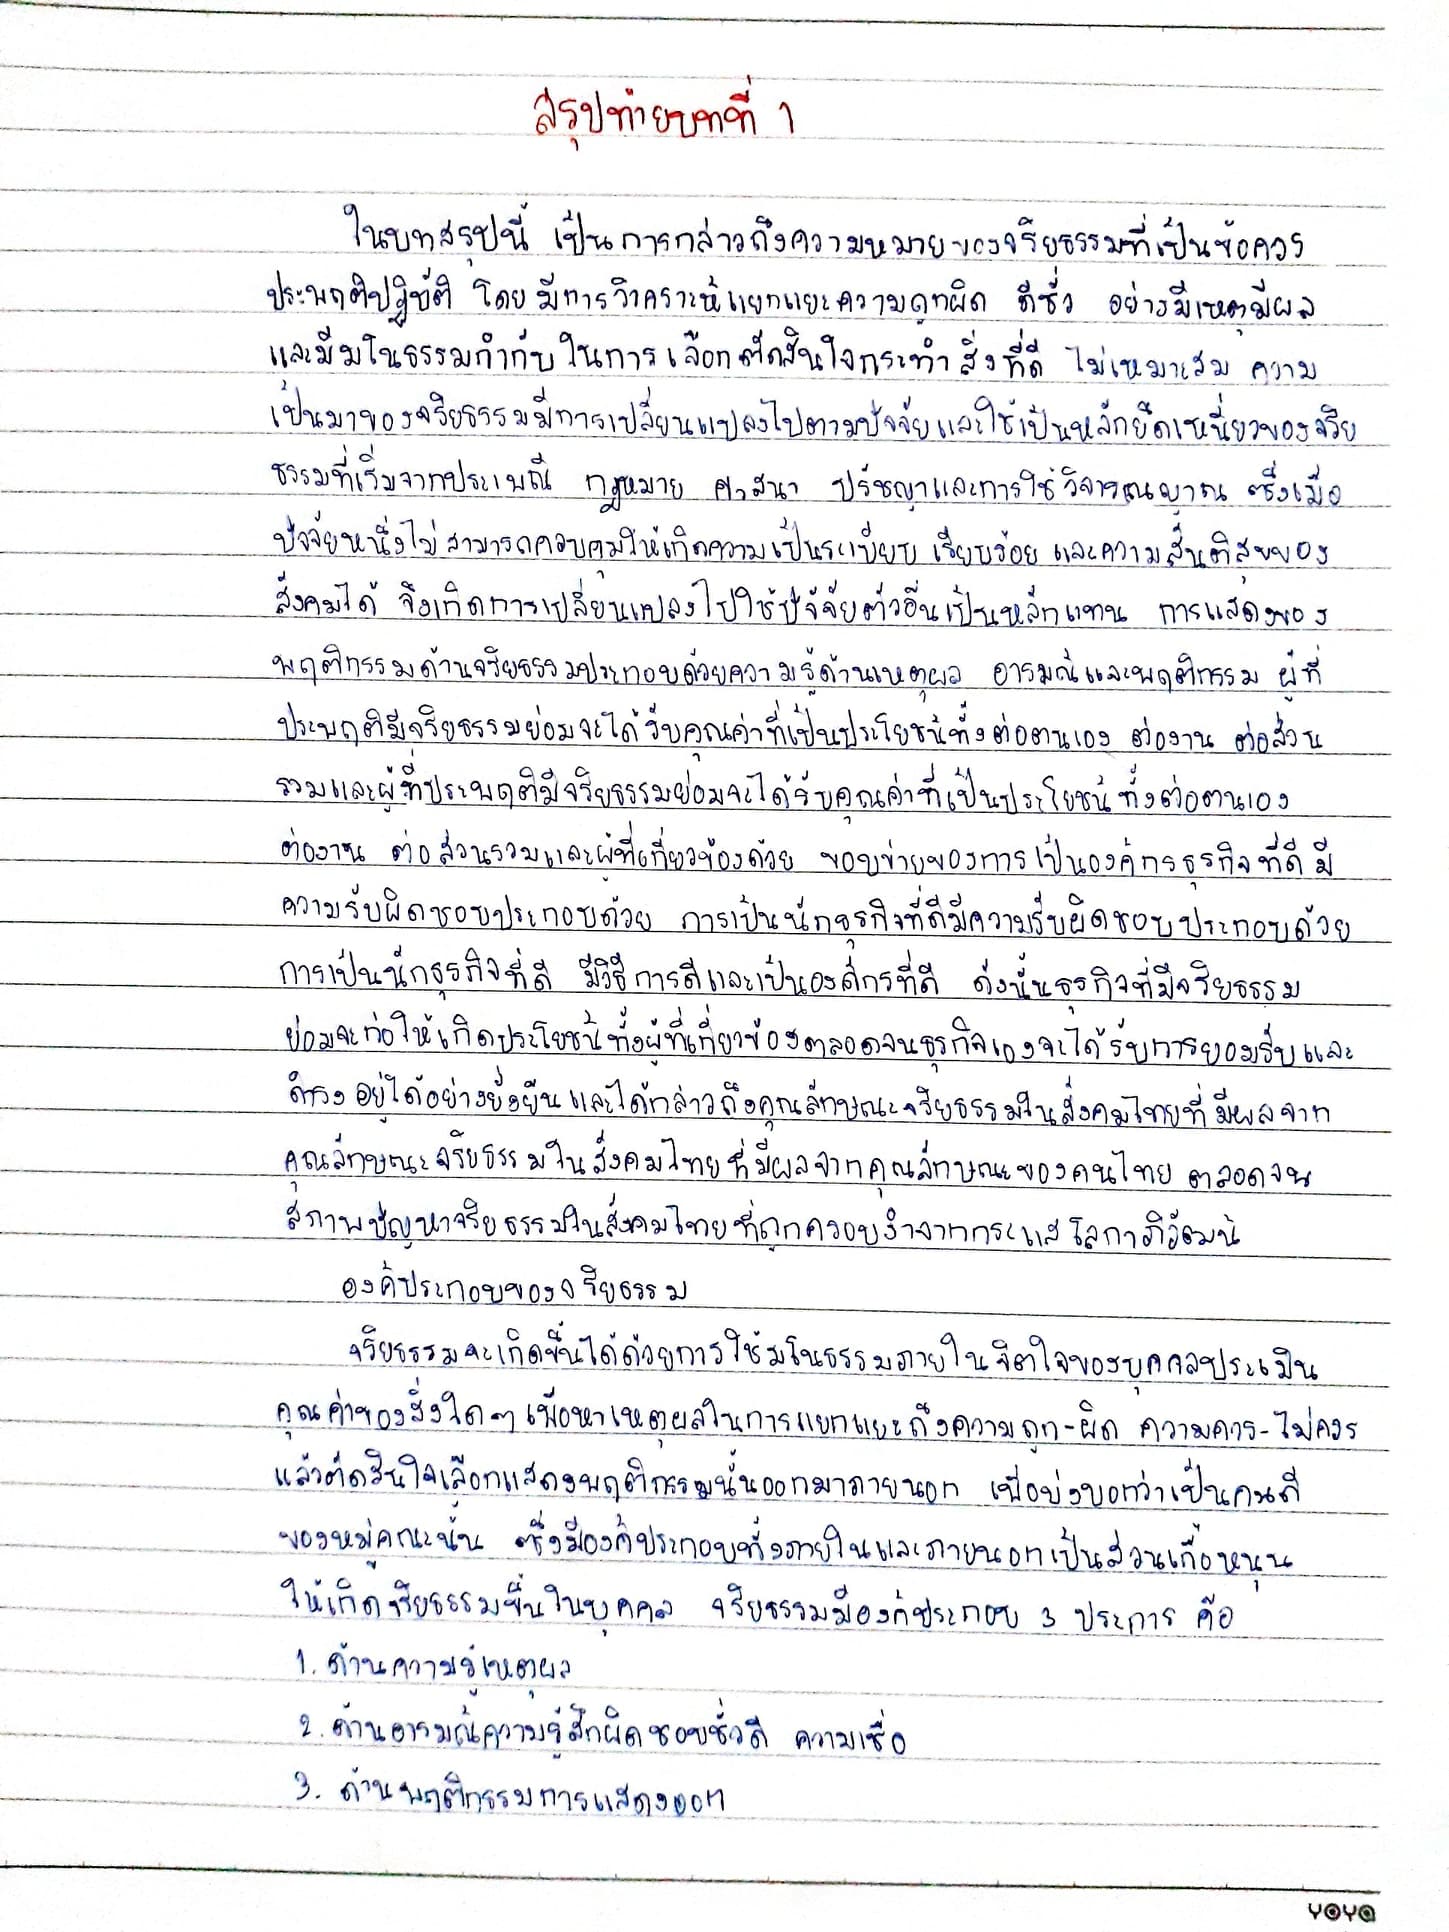 สรุปท้ายบทที่ 1
ในบทสรุปนี้ เป็นการกล่าวถึงความหมายของจริยธรรมที่เป็นข้อควร
ประพฤติปฏิบัติ โดยมีการวิเคราะห์แยกแยะความถูกผิด ดีชั่ว อย่างมีเหตุมีผล
และมีมโนธรรมกำกับในการเลือกตัดสินใจกระทำสิ่งที่ดี ไม่เหมาะสม ความ
เป็นมาของจริยธรรมมีการเปลี่ยนแปลงไปตามปัจจัยและใช้เป็นหลักยึดเหนี่ยวของจริย
ธรรมที่เริ่มจากประเพณี กฎหมาย ศาสนา ปรัชญาและการใช้วิจารณญาณ ซึ่งเมื่อ
ปัจจัยหนึ่งไม่สามารถควบคุมให้เกิดความเป็นระเบียบ เรียบร้อย และความสันติสุขของ
สังคมได้ จึงเกิดการเปลี่ยนแปลงไปใช้ปัจจัยตัวอื่นเป็นหลักแทน การแสดงของ
พฤติกรรมด้านจริยธรรมประกอบด้วยความรู้ด้านเหตุผล อารมณ์และพฤติกรรม ผู้ที่
ประพฤติมีจริยธรรมย่อมจะได้รับคุณค่าที่เป็นประโยชน์ทั้งต่อตนเอง ต่องาน ต่อส่วน
รวมและผู้ที่ประพฤติมีจริยธรรมย่อมจะได้รับคุณค่าที่เป็นประโยชน์ทั้งต่อตนเอง
ต่องาน ต่อส่วนรวมและผู้ที่เกี่ยวข้องด้วย ขอบข่ายของการเป็นองค์กรธุรกิจที่ดี มี
ความรับผิดชอบประกอบด้วย การเป็นนักธุรกิจที่ดีมีความรับผิดชอบประกอบด้วย
การเป็นนักธุรกิจที่ดี มีวิธีการดีและเป็นองค์กรที่ดี ดังนั้นธุรกิจที่มีจริยธรรม
ย่อมจะก่อให้เกิดประโยชน์ทั้งผู้ที่เกี่ยวข้องตลอดจนธุรกิจเองจะได้รับการยอมรับและ
ดำรงอยู่ได้อย่างยั่งยืนและได้กล่าวถึงคุณลักษณะจริยธรรมในสังคมไทยที่มีผลจาก
คุณลักษณะจริยธรรมในสังคมไทยที่มีผลจากคุณลักษณะของคนไทย ตลอดจน
สภาพปัญหาจริยธรรมในสังคมไทยที่ถูกครอบงำจากกระแสโลกาภิวัฒน์
องค์ประกอบของจริยธรรม
จริยธรรมจะเกิดขึ้นได้ด้วยการใช้มโนธรรมภายในจิตใจของบุคคลประเมิน
คุณค่าของสิ่งใดๆ เพื่อหาเหตุผลในการแยกแยะถึงความถูก-ผิด ความควร-ไม่ควร
แล้วตัดสินใจเลือกแสดงพฤติกรรมนั้นออกมาภายนอก เพื่อบ่งบอกว่าเป็นคนดี
ของหมู่คณะนั้น ซึ่งมีองค์ประกอบทั้งภายในและภายนอกเป็นส่วนเกื้อหนุน
ให้เกิดจริยธรรมขึ้นในบุคคล จริยธรรมมีองค์ประกอบ 3 ประการ คือ
1. ด้านความรู้เหตุผล
2. ด้านอารมณ์ความรู้สึกผิดชอบชั่วดี ความเชื่อ
3. ด้านพฤติกรรมการแสดงออก
YOYA